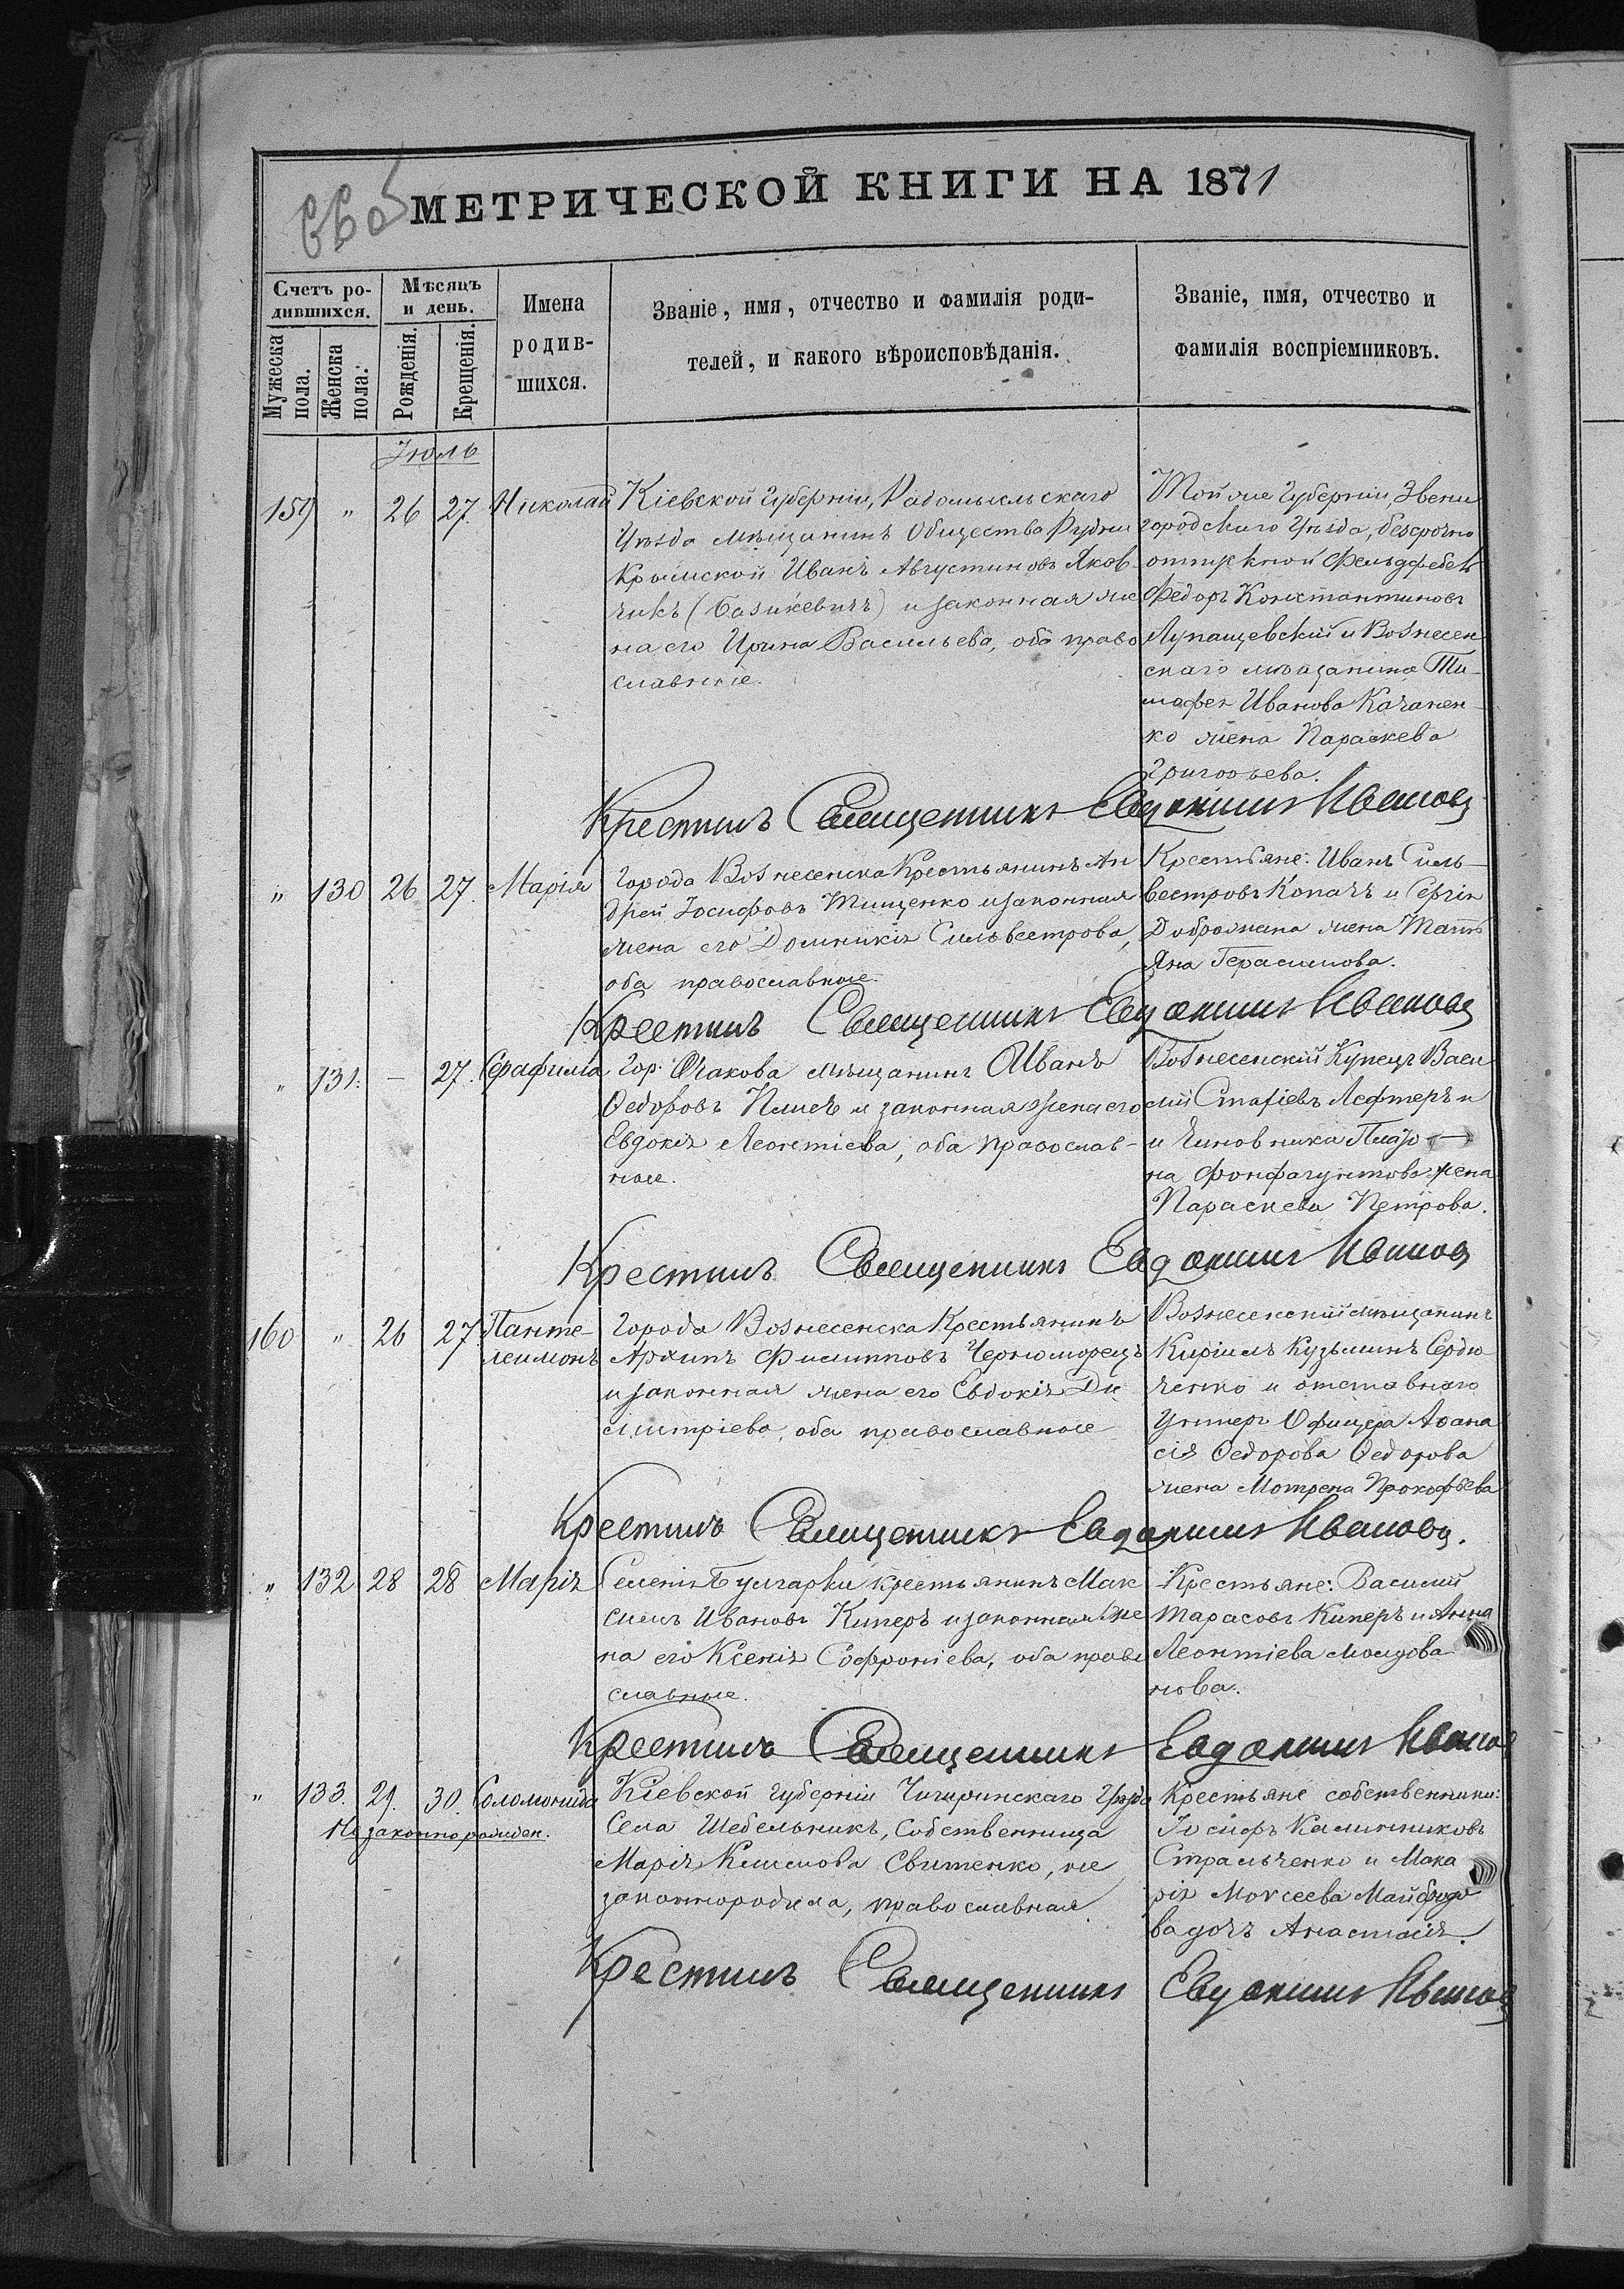 МЕТРИЧЕСКОЙ КНИГИ НА 1871
Счетъ ро-
дившихся.
Мужеска
пола.
Женска
пола.
Мѣсяцъ
и день.
Рожденія.
Крещенія.
Имена
родив-
шихся.
Званіе, имя, отчество и фамилія роди-
телей, и какого вѣроисповѣданія.
Званіе, имя, отчество и
фамилія воспріемниковъ.
Іюль
159 " 26 27. Николай
Кіевской Губерніи, Радомысльскаго
Уѣзда мѣщанинъ Общества Рудни
Крымской Иванъ Августиновъ Яков-
чикъ (Базикевичъ) и законная же
на его Ирина Васильева, оба право
славные.
Той же Губерніи, Звени
городскаго Уѣзда, безсрочно
отпускной Фельдфебель
Федоръ Константиновъ
Лупащевскій и Вознесен
скаго мѣщанина Ти-
мофея Иванова Качанен-
ко жена Параскева
Григорьева.
Крестилъ Священникъ Евдокимъ Ивановъ
" 130 26 27. Марія
Города Вознесенска Крестьянинъ Ан
дрей Іосифовъ Тищенко и законная
жена его Домникія Сильвестрова,
оба православные.
Крестьяне: Иванъ Силь-
вестровъ Копачъ и Сергія
Доброжана жена Тать
яна Герасимова.
Крестилъ Священникъ Евдокимъ Ивановъ
" 131. — 27. Серафима
Гор. Очакова мѣщанинъ Иванъ
Ѳедоровъ и законная жена его
Евдокія Леонтіева, оба православ-
ные.
Вознесенскій Купецъ Васи
лій Стафіевъ Лефтеръ и
и Чиновника
на жена
Параскева Петрова.
Крестилъ Священникъ Евдокимъ Ивановъ
160 " 26 27. Панте-
леимонъ
Города Вознесенска Крестьянинъ
Архипъ Филипповъ Черноморецъ
и законная жена его Евдокія Ди
митріева, оба православные
Вознесенскій мѣщанинъ
Кирилъ Кузьминъ Сердю
ченко и отставнаго
Унтеръ Офицера Аѳана
сія Ѳедорова Ѳедорова
жена Мотрена Прокофьева
Крестилъ Священникъ Евдокимъ Ивановъ.
" 132 28 28 Марія
Селенія Булгарки крестьянинъ Мак
симъ Ивановъ Киперъ и законная же
на его Ксенія Софроніева, оба право
славные.
Крестьяне: Василій
Тарасовъ Киперъ и Анна
Леонтіева Молдова
нова.
Крестилъ Священникъ Евдокимъ Ивановъ
" 133. 29. 30. Соломонида
Незаконнорожден.
Кіевской Губерніи Чигиринскаго Уѣзда
Села Шебельникъ, Собственница
Марія Климова Свитенко, не
законнородила, православная.
Крестьяне собственники:
Іосифъ Калинниковъ
Стрельченко и Мака
рія Моисеева
ва дочь Анастасія.
Крестилъ Священникъ Евдокимъ Ивановъ